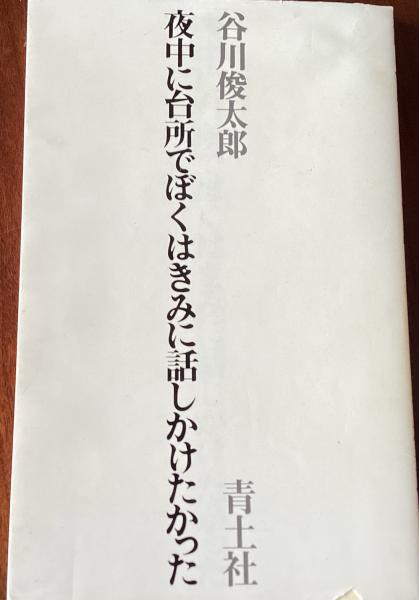 谷川俊太郎
夜中に台所でぼくはきみに話しかけたかった
青土社